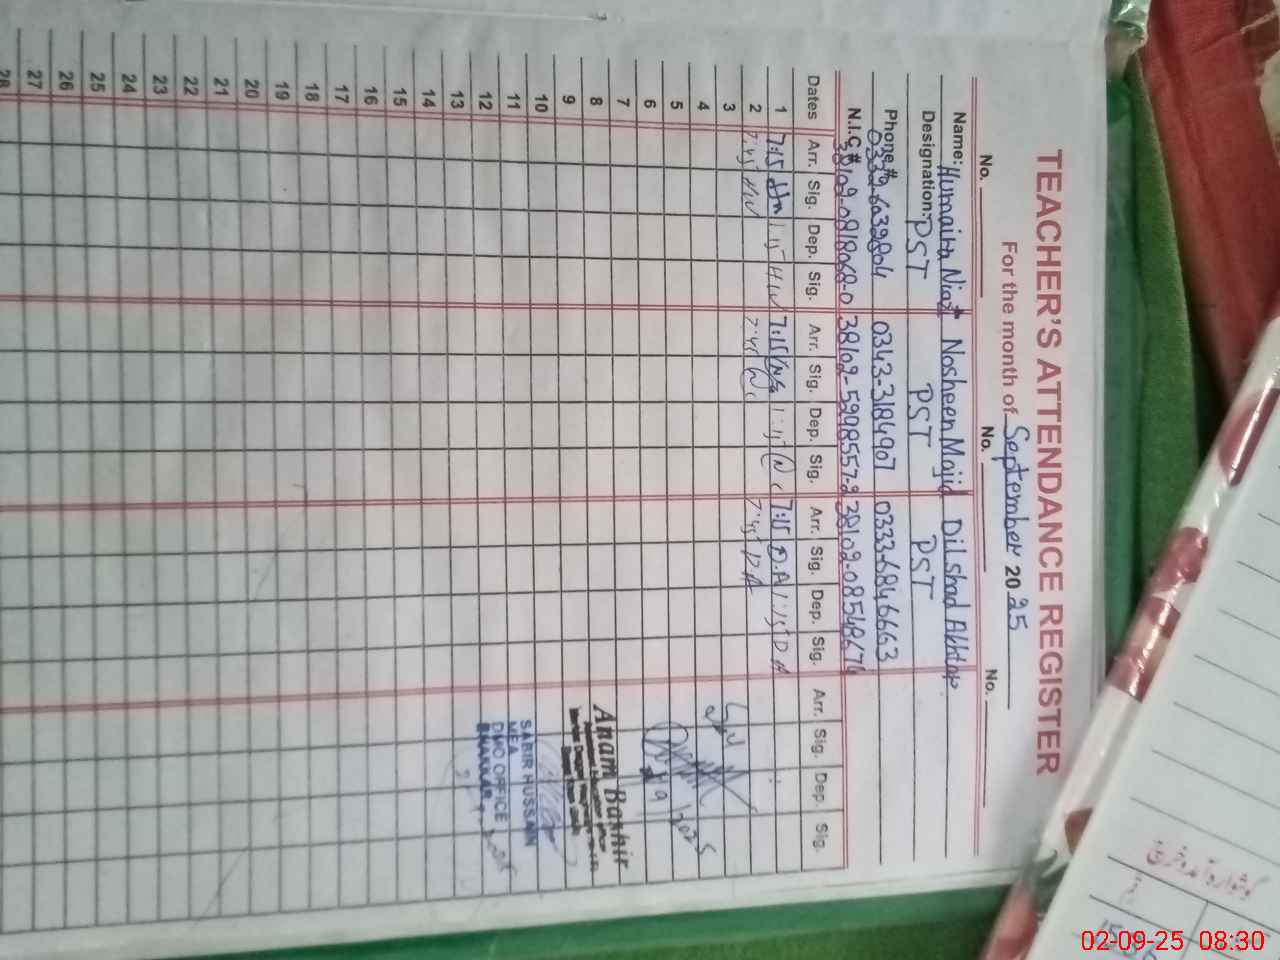 TEACHER'S ATTENDANCE REGISTER
For the month of September 2025
No. No. No.
Name: Humaira Niazi Nosheen Majid Dilshad Akhtar.
Designation: PST PST PST
Phone # 0332-6032804 0343-3184907 0333-6846663
N.I.C.# 38102-0818068-0 38102-5298557-2 38102-0854867
Dates Arr. Sig. Dep. Sig. Arr. Sig. Dep. Sig. Arr. Sig. Dep. Sig. Arr. Sig. Dep. Sig.
1 7:15 1:15 HN 7:15 1:15 N 7:15 D.A 1:15 D A
2 7:45 HN 7:45 N 7:45 D A
3
4
5
6
7
8
9
10
11
12
13
14
15
16
17
18
19
20
21
22
23
24
25
26
27
28
Anam Bashir
SABIR HUSSAIN
MEA
DMO OFFICE
BHAKKAR
گوشوارہ آمدوخرچ
02-09-25 08:30